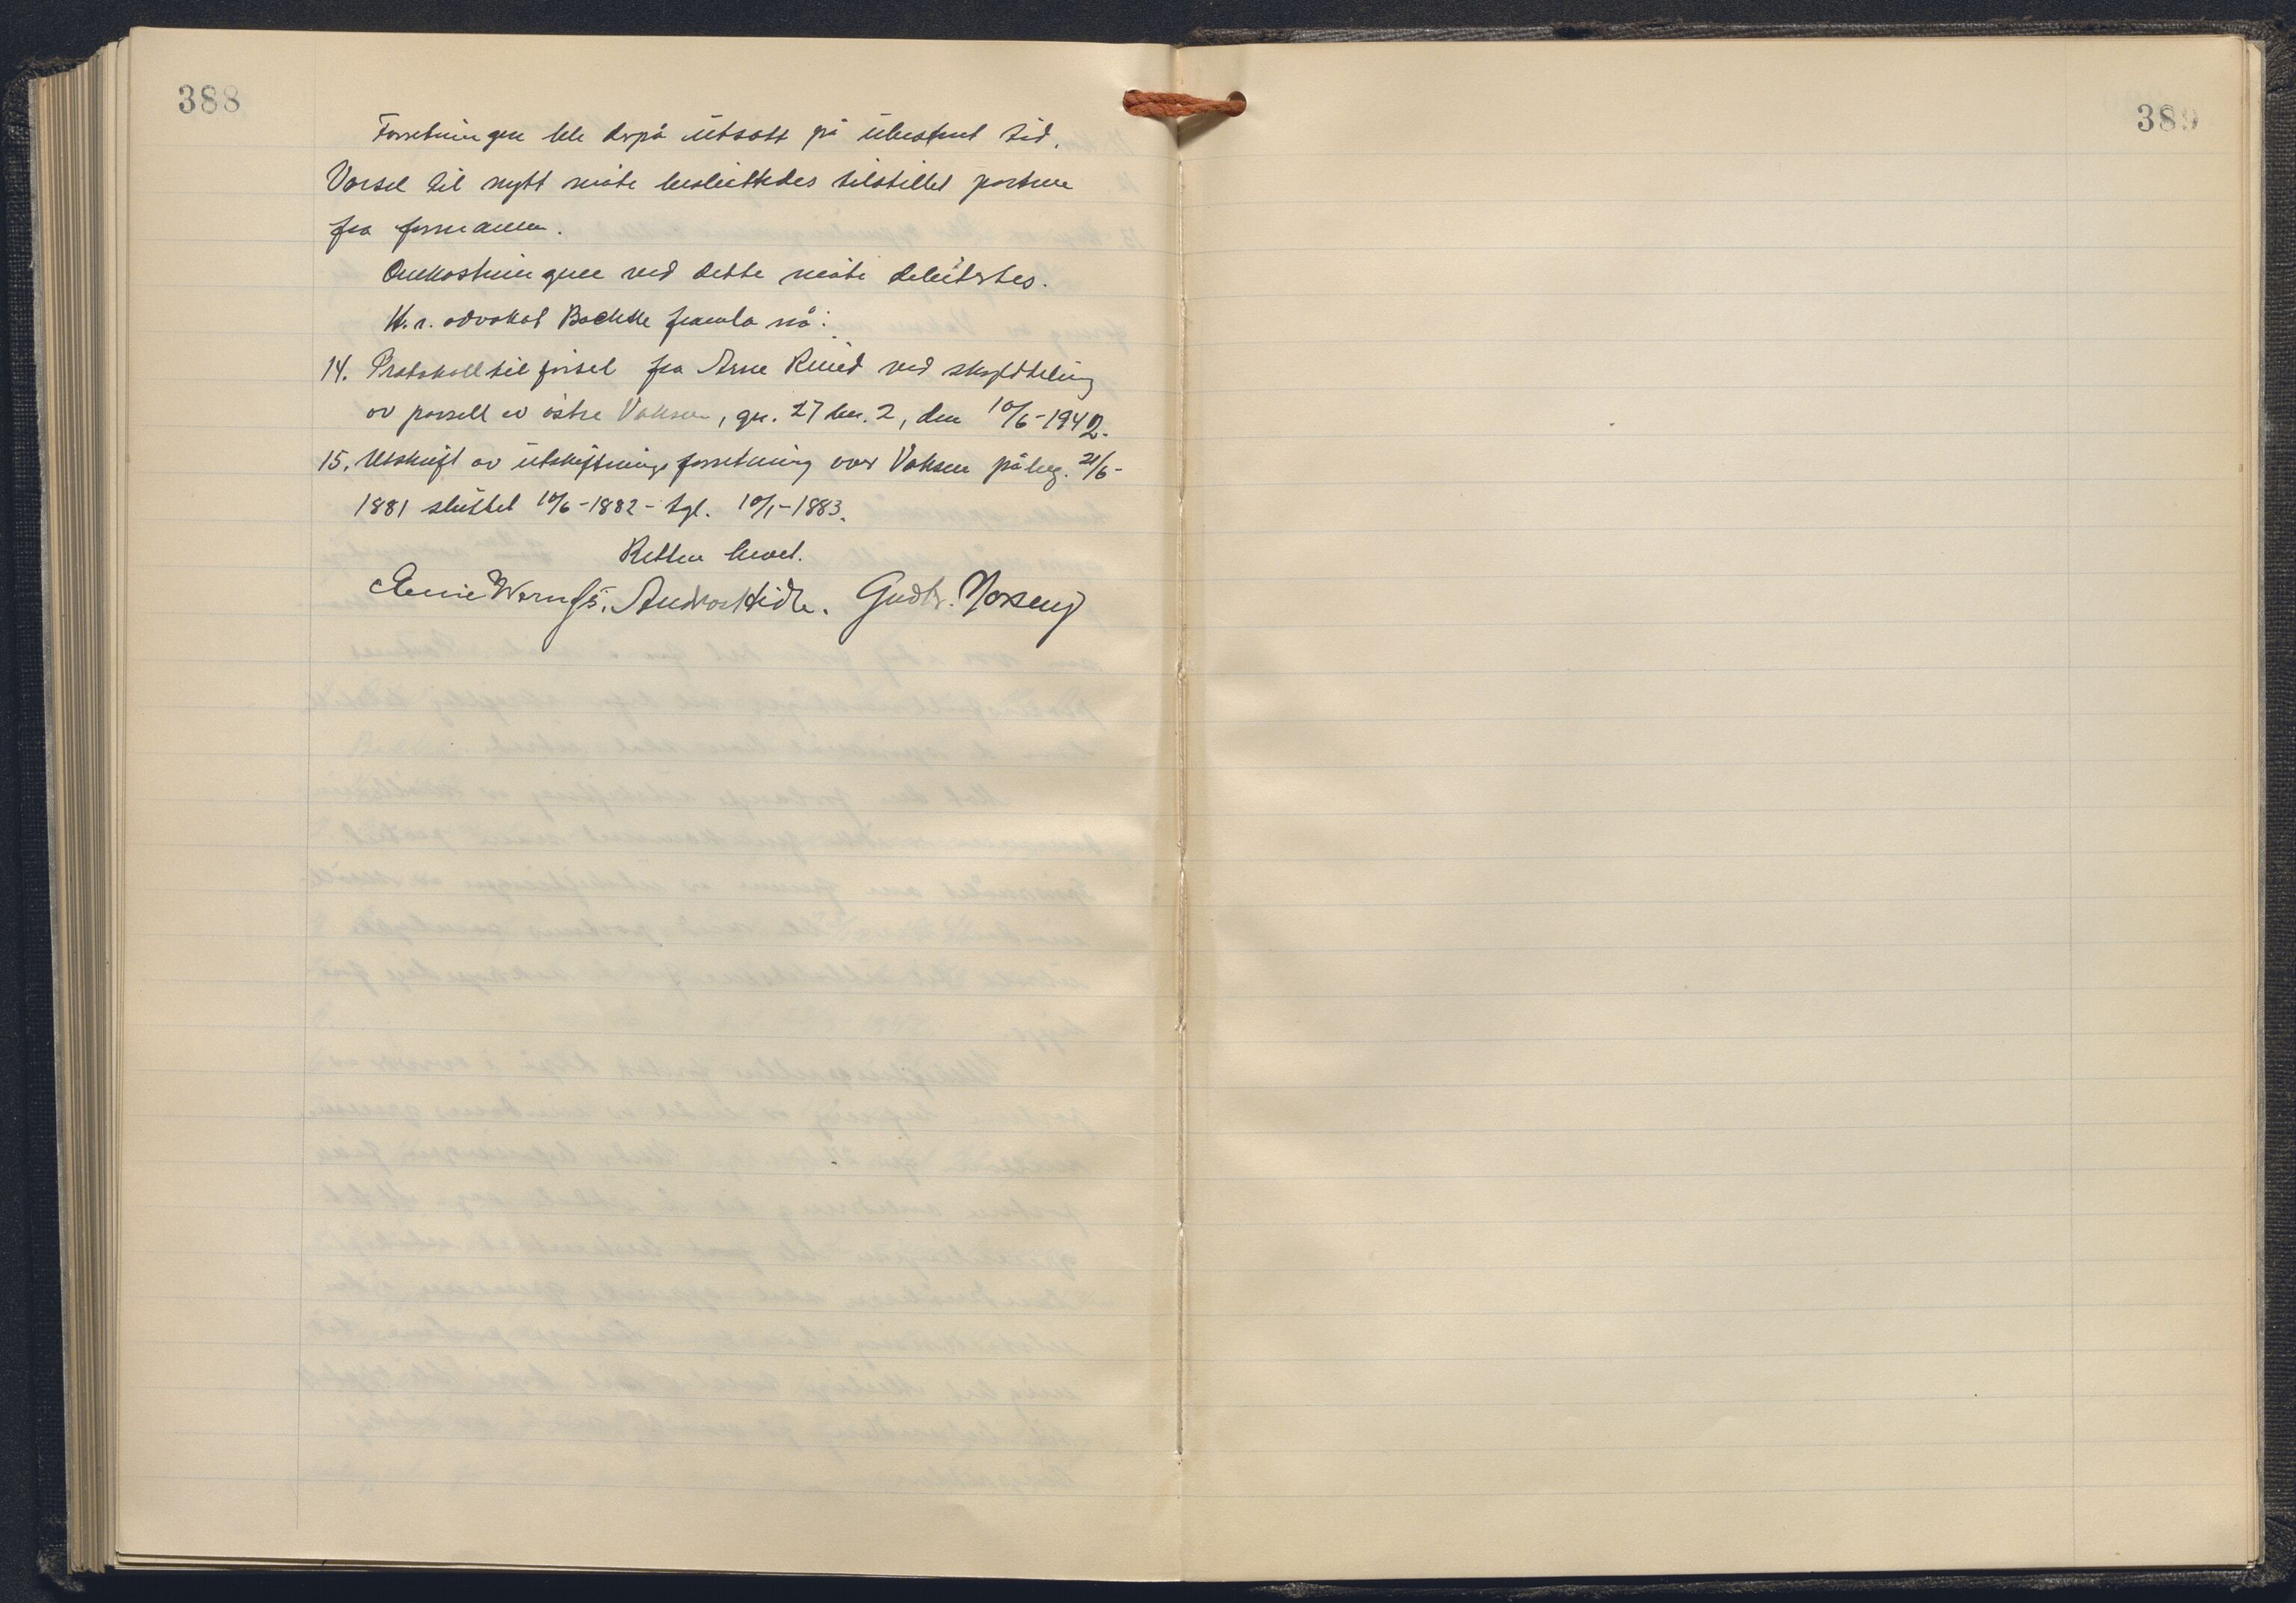 388
Forretningen ble derpå utsatt på ubestemt tid.
Varsel til nytt møte besluttedes tilstillet partene
fra formannen.
Omkostningene ved dette møte debitertes.
H.r. advokat Bachke framla nå:
14. Protokolltilførsel fra Arne Ruud ved skylddeling
av parsell av østre Voksen, gn. 27 bn. 2, den 10/6-1942.
15. Utskrift av utskiftningsforretning over Voksen påbeg. 21/6-
1881 sluttet 10/6-1882 - tgl. 10/1-1883.
Retten hevet.
Andreas Hidle. Gudbr.
389